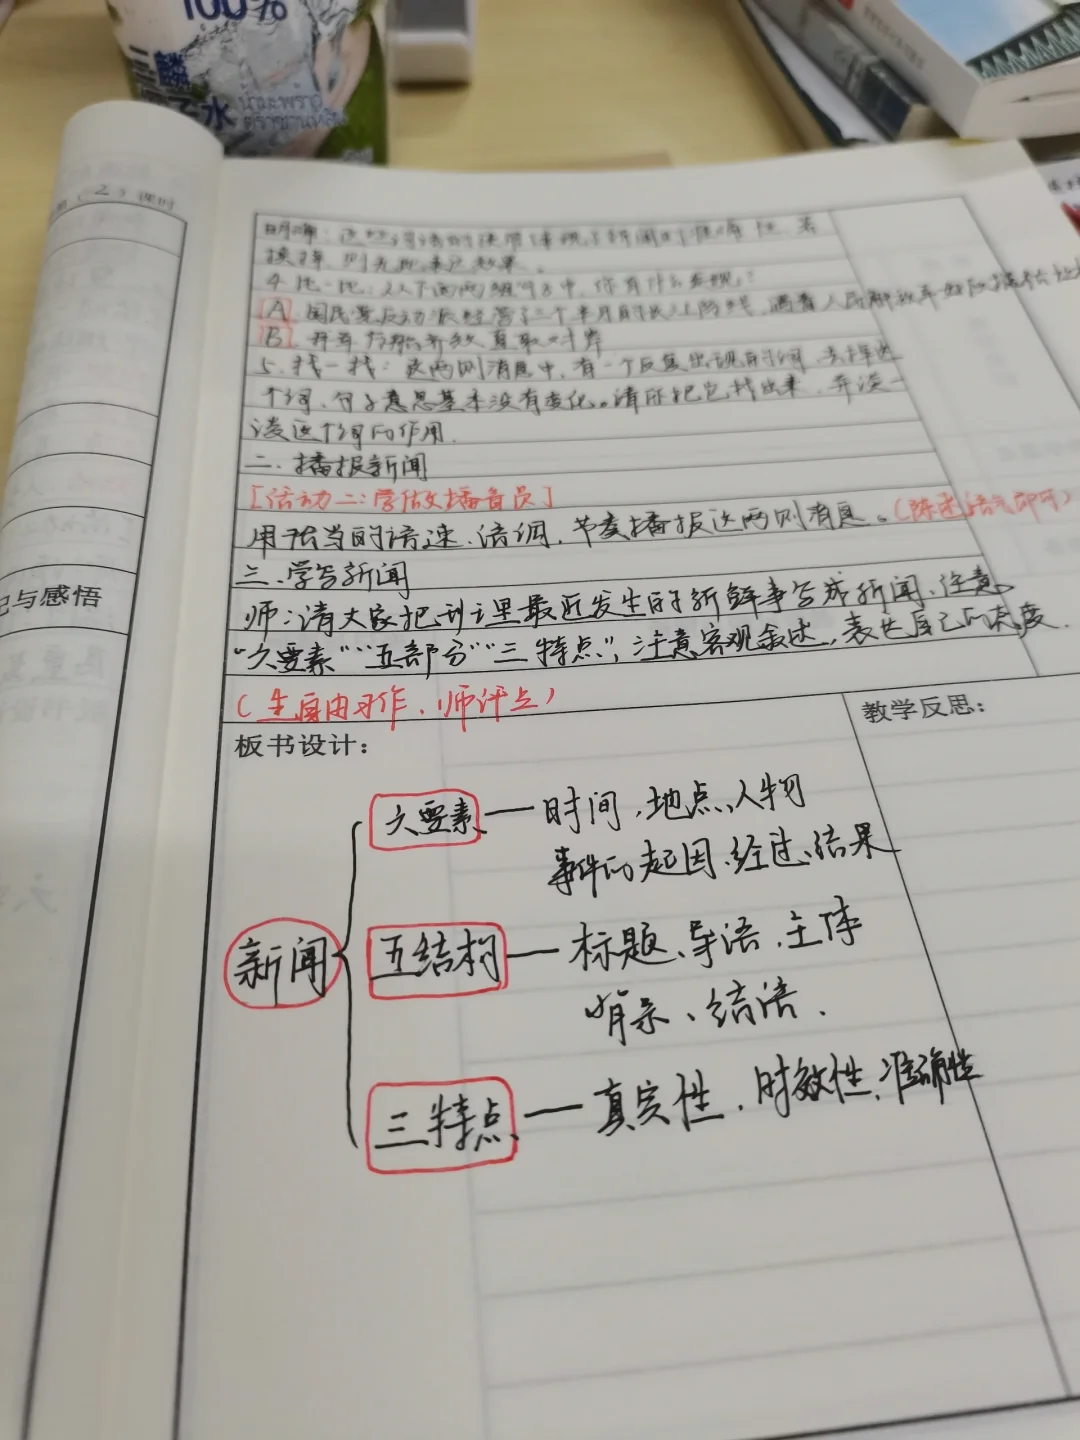 100%
水
（2）课时
明确：这些词语的使用体现了新闻的准确性，若
换掉，则无此表达效果。
4. 比一比：以下面两组句子中，你有什么发现？
A. 国民党反动派经营了三个半月的长江防线，遇着人民解放军好似摧枯拉
B.
5. 找一找：这两则消息中，有一个反复出现的词，去掉这
个词，句子意思基本没有变化。请你把它找出来，并谈一
谈这个词的作用.
二. 播报新闻
[活动二：学做播音员]
用恰当的语速、语调、节奏播报这两则消息。(陈述语气即可)
三. 学写新闻
记与感悟
师：请大家把班里最近发生的新鲜事写成新闻，注意
“六要素”“五部分”“三特点”，注意客观叙述，表达自己的态度.
(生自由习作，师评点)
板书设计：
教学反思：
六要素 — 时间、地点、人物
事件的起因、经过、结果
新闻
五结构 — 标题、导语、主体
背景、结语.
三特点 — 真实性、时效性、准确性